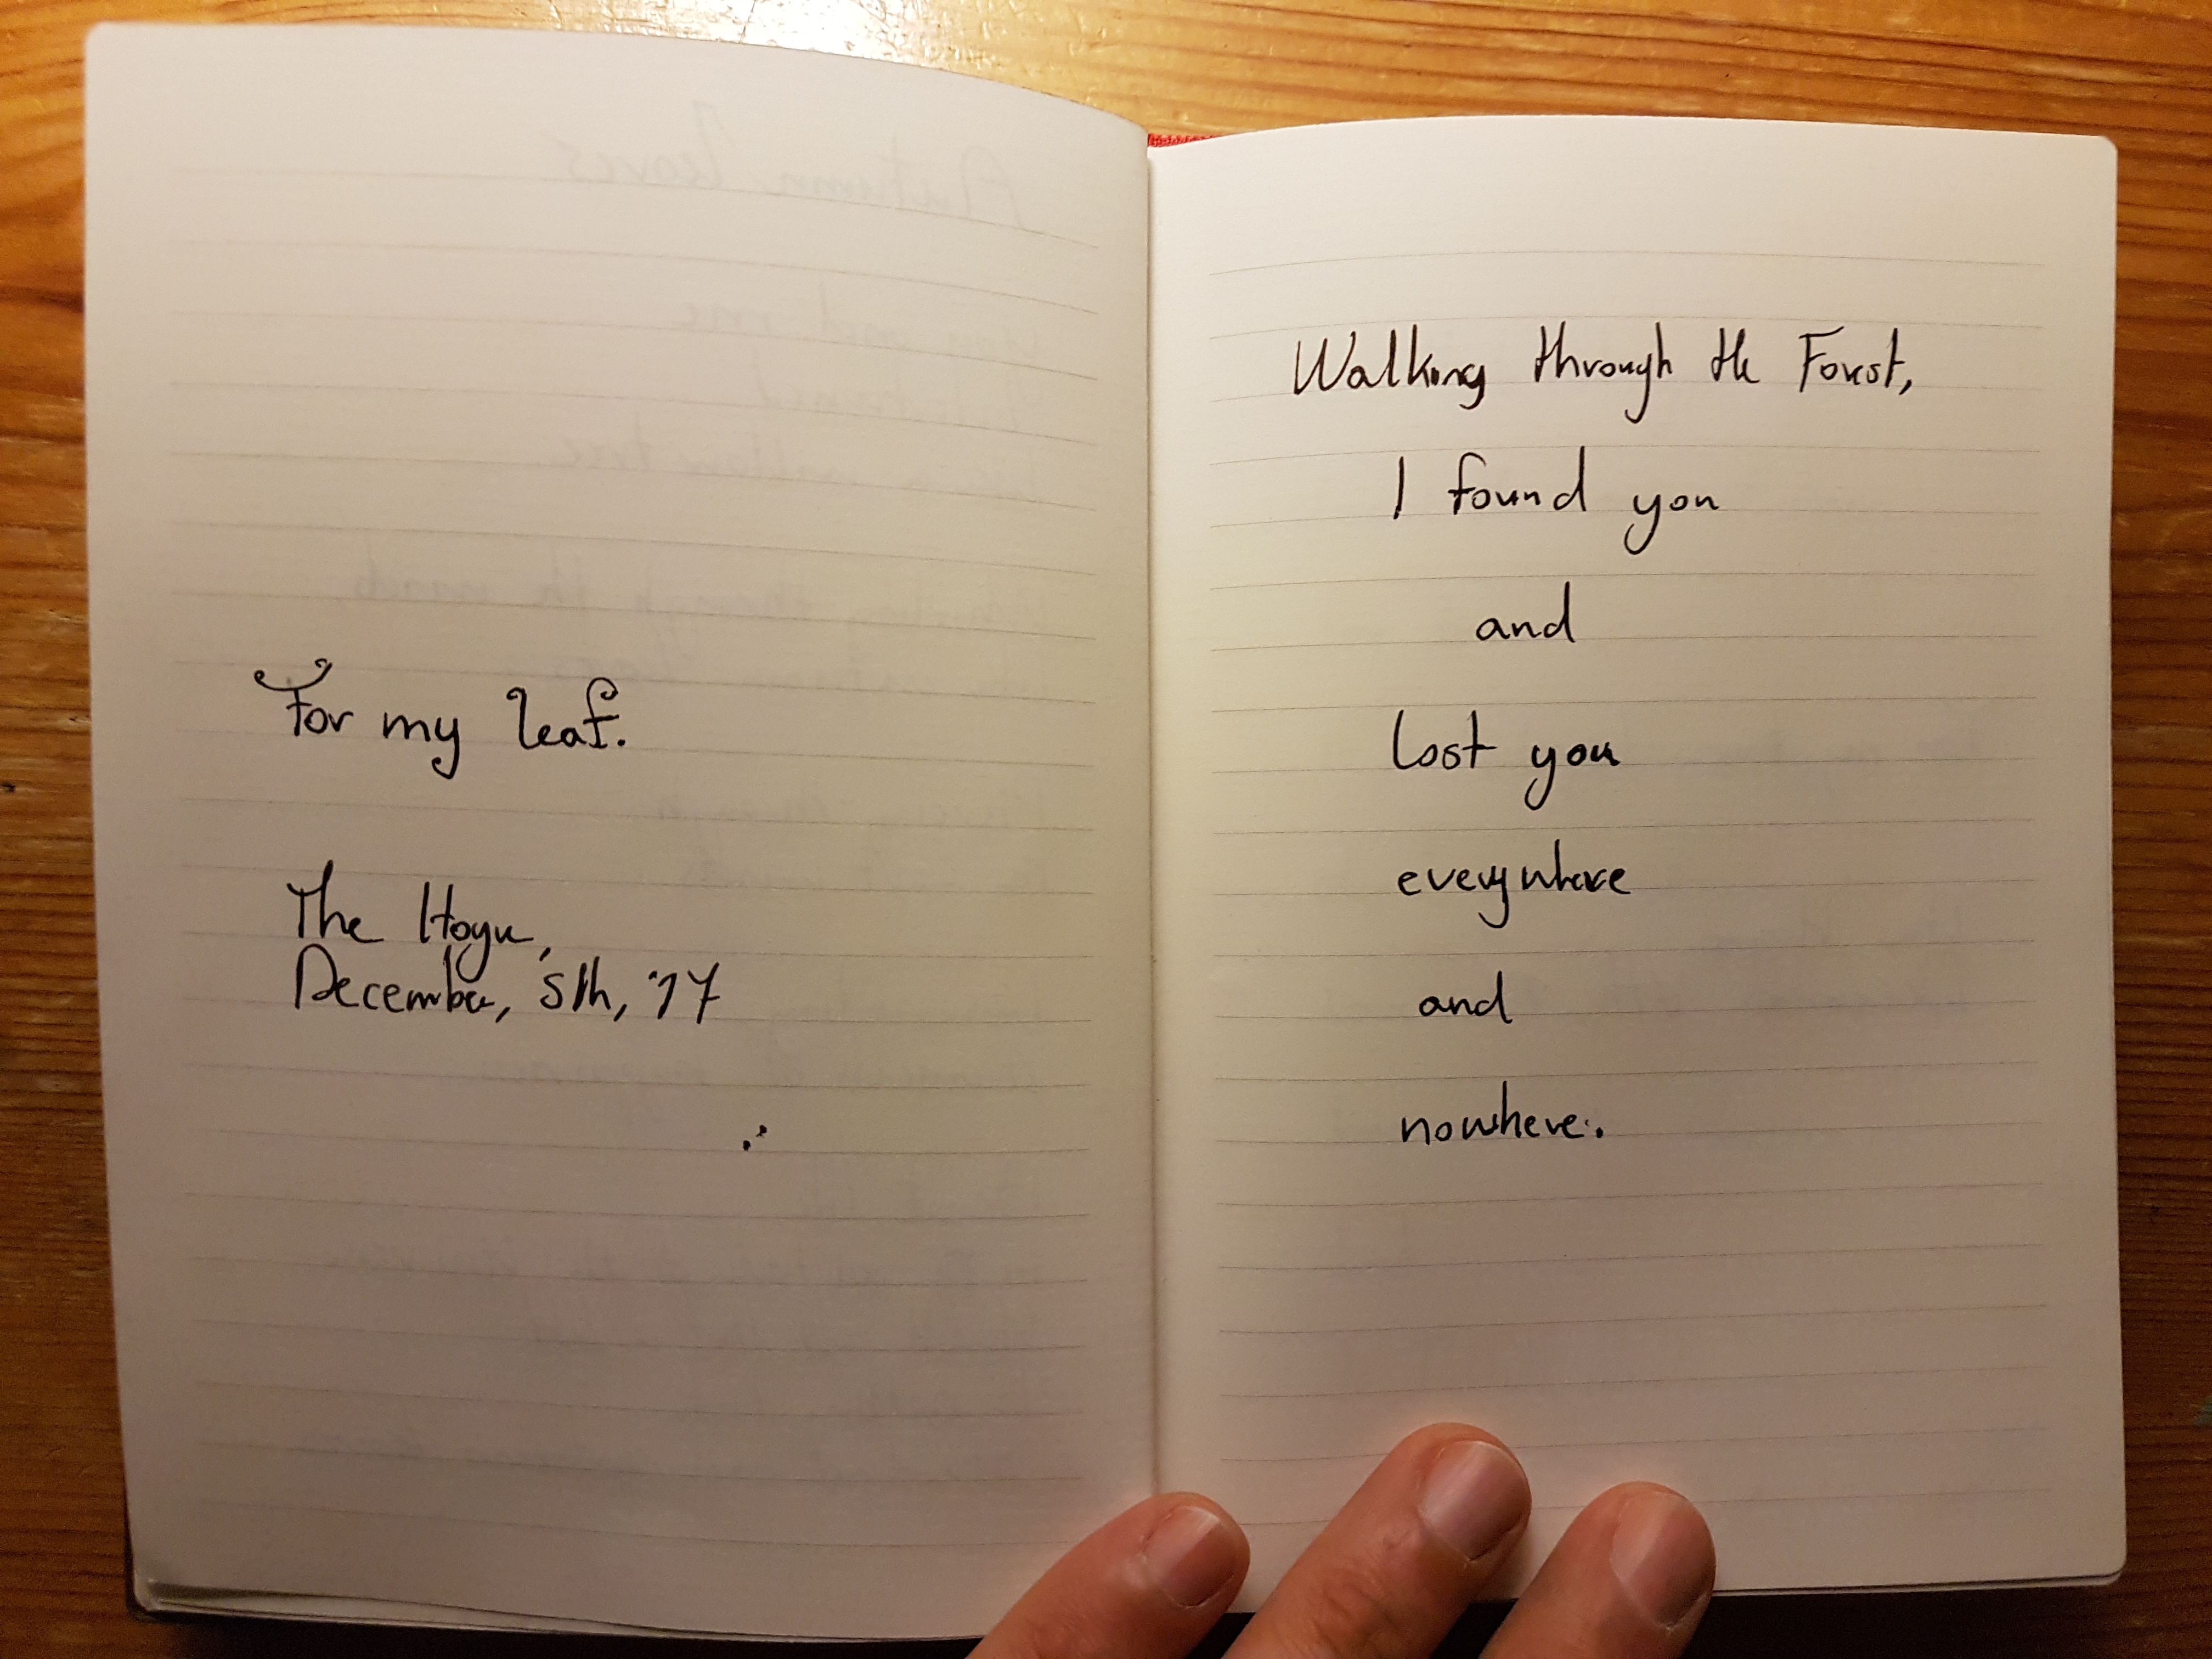 For my leaf.
The Hague,
December, 5th, '17
Walking through the Forest,
I found you
and
lost you
everywhere
and
nowhere.